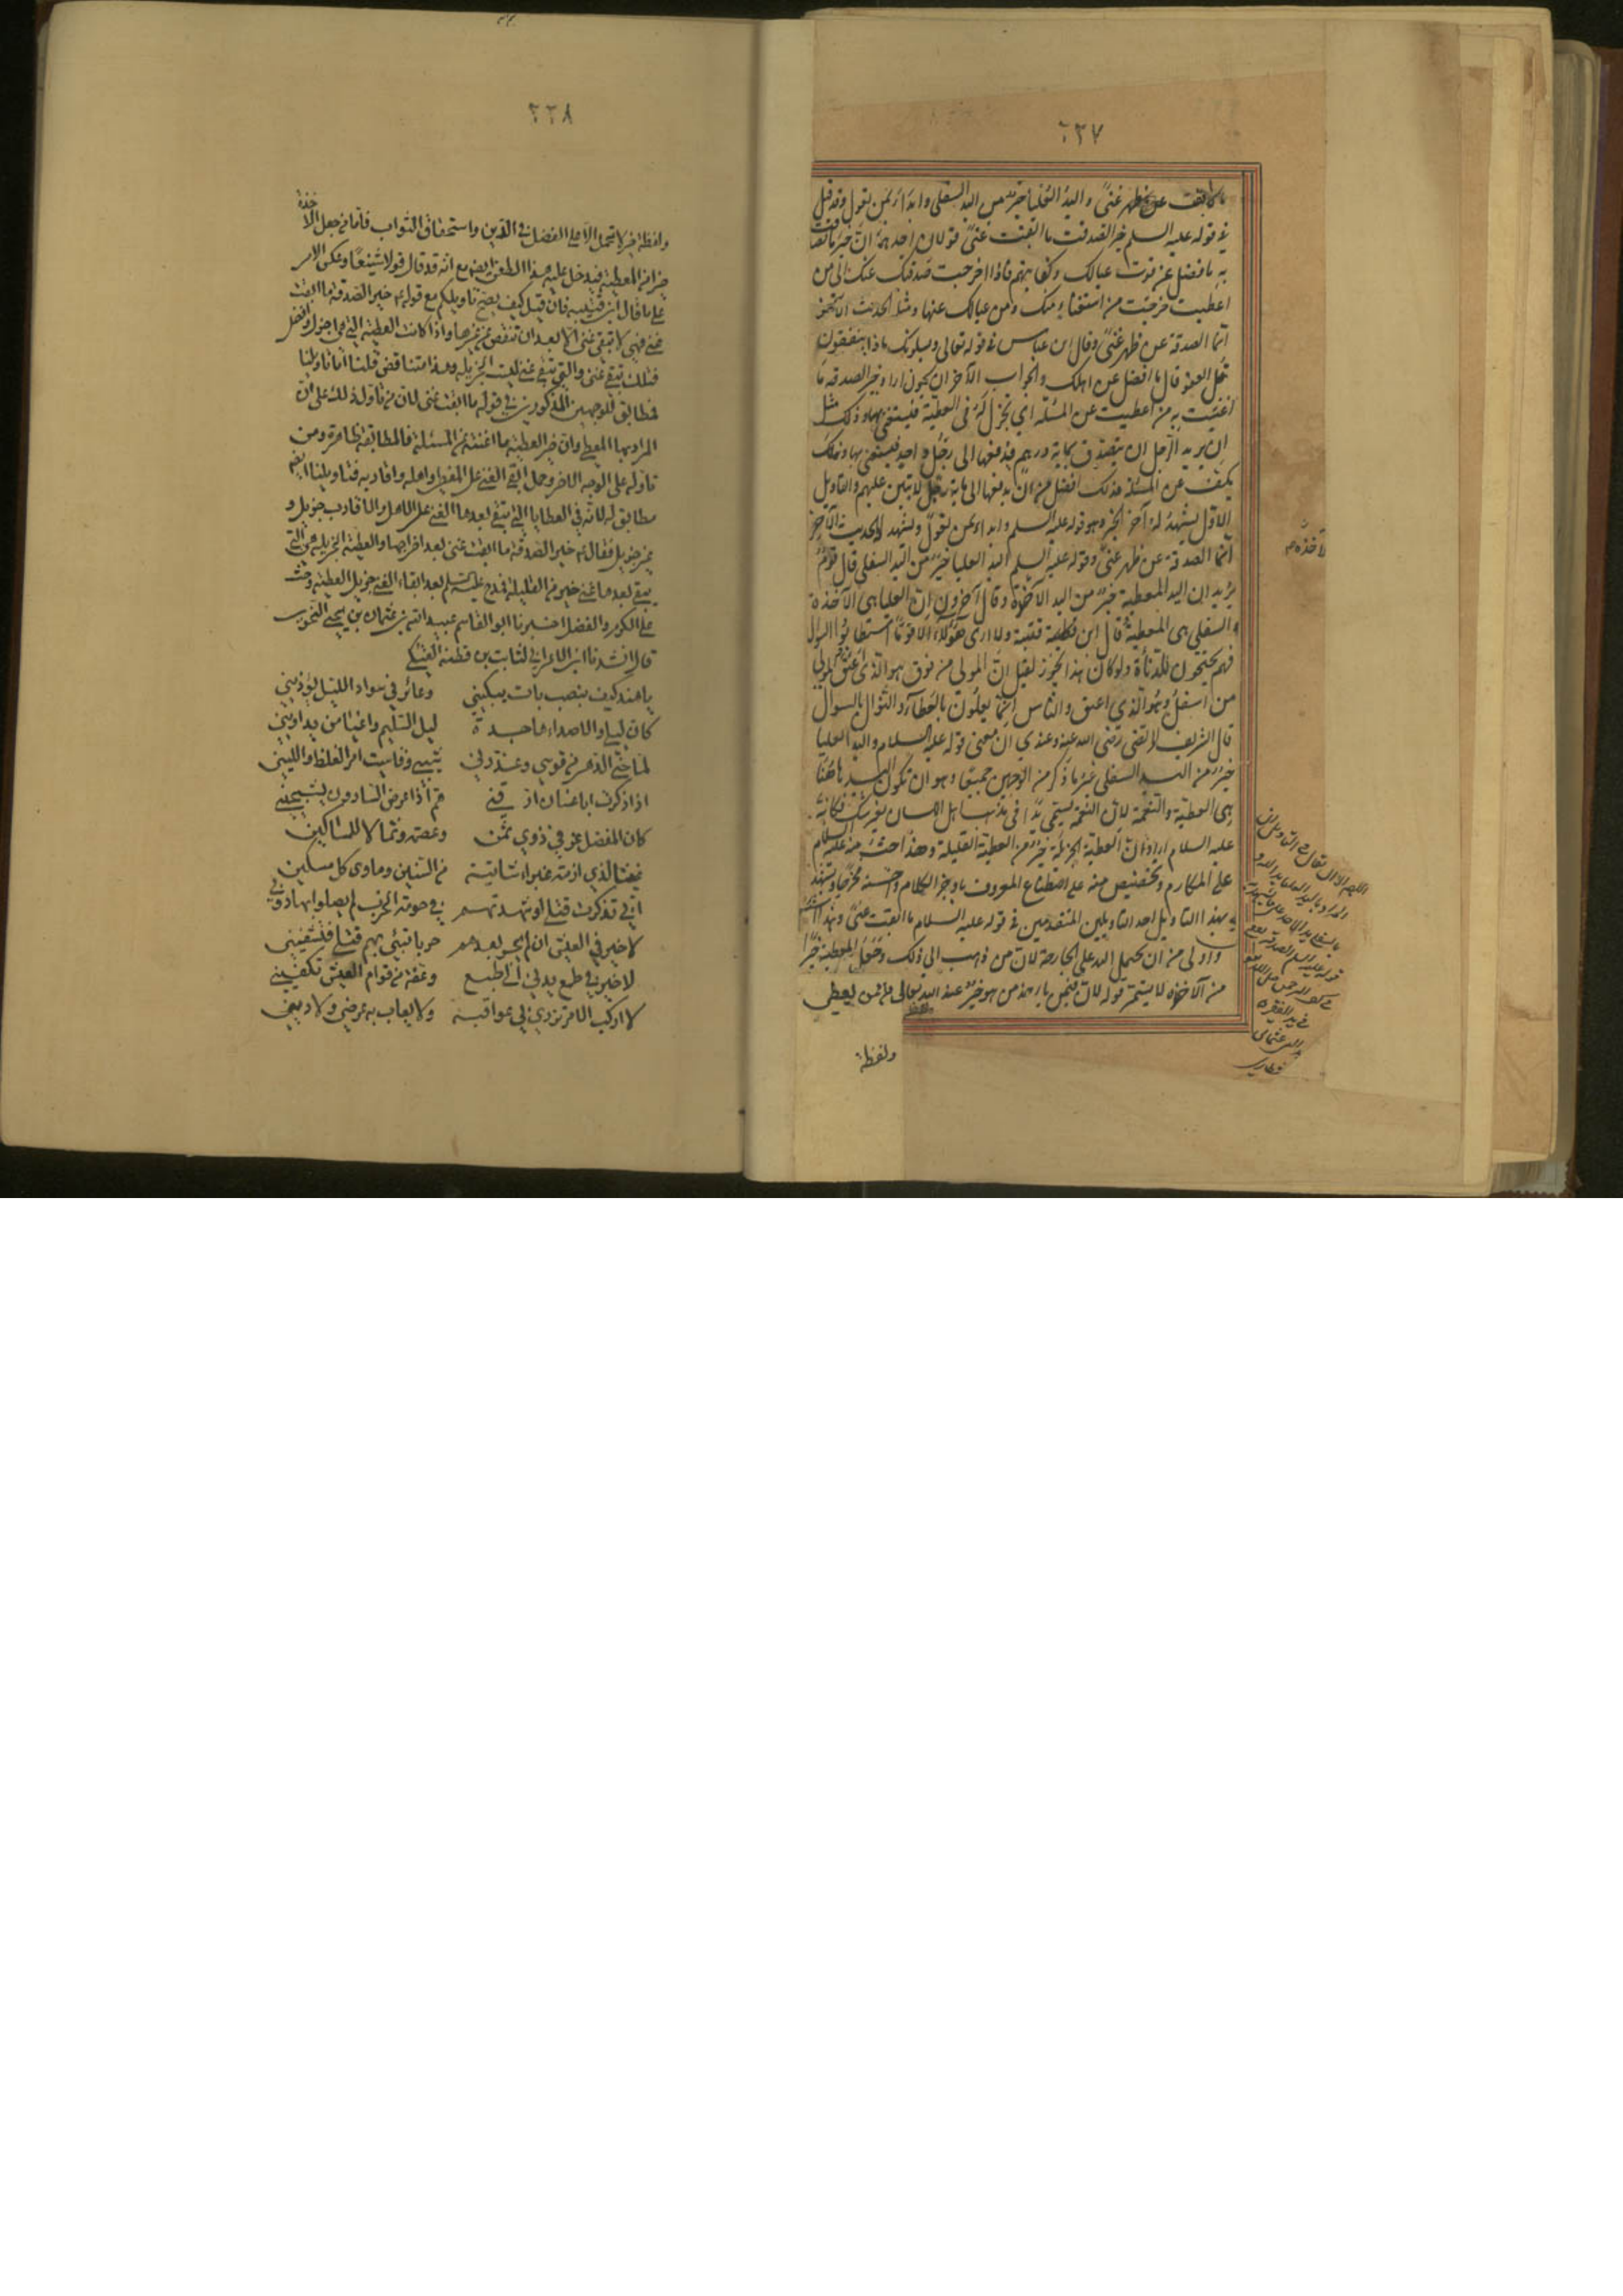 ٢٣٧
ما ابقت عن ظهر غنىً واليد العُليا خير من اليد السفلى وابدأ بمن تعول وقد قيل
في قوله عليه السلم خير الصدقة ما ابقت غنىً قولان احدهما انّ خير ما تصدقت
به ما فضل عن قوت عيالك وكفايتهم فاذا اخرجت صدقتك عنك الى من
اعطيت خرجت من استغناء منك ومن عيالك عنها ومثله الحديث الآخر
انّما الصدقة عن ظهر غنىً وقال ابن عباس في قوله تعالى ويسئلونك ماذا ينفقون
قل العفو قال ما افضل عن اهلك والجواب الآخر ان يكون اراد خير الصدقة ما
اغنيت به من اعطيت عن المسئلة اي تجزل له في العطيّة فيستغني بها وذلك مثل
ان يريد الرّجل ان يتصدق بماية درهم فيدفعها الى رجل واحد فيستغني بها و
يكفّ عن المسئلة فذلك افضل من ان يدفعها الى ماية رجل لا تبين عليهم والتاويل
الاوّل يشهد له آخر الخبر وهو قوله عليه السلم وابدأ بمن تعول ويشهد له الحديث الآخر
انّما الصدقة عن ظهر غنىً وقوله عليه السلم اليد العليا خير من اليد السفلى قال قوم
يريد ان اليد المعطية خير من اليد الآخذة وقال آخرون ان العليا هي الآخذة
والسفلى هي المعطية قال ابن قتيبة ولا ارى هؤلاء الا قومًا استطابوا السؤال
فهم يحتجون للدناءة ولو كان هذا يجوز لقيل ان المولى من فوق هو الذي اُعتق والمولى
من اسفل هو الذي اعتق والناس انّما يعلون بالعطاء لا بالسؤال
قال الشريف المرتضى رضى الله عنه وعندي ان معنى قوله عليه السلام واليد العليا
خير من اليد السفلى غير ما ذكر من الوجهين جميعًا وهو ان تكون اليد هاهنا
هي العطية والنعمة لانّ النعمة تسمى يدًا في مذهب اهل اللسان بغير شك فكانه
عليه السلام اراد انّ العطية الجزيلة خير من العطية القليلة وهذا حثّ منه عليه السلام
على المكارم وتحضيض منه على اصطناع المعروف باوجز الكلام واحسنه مخرجًا ويشهد
بهذا التاويل احد التاويلين المتقدمين في قوله عليه السلام ما ابقت غنىً وهذا
واولى من ان تحمل اليد على الجارحة لانّ من ذهب الى ذلك وجعل المعطية خيرًا
من الآخذة لا يستمرّ قوله لانّ فيمن ياخذ من هو خير عند الله تعالى ممّن يعطي
ولفظة
٢٣٨
ولفظة خير لا تحمل الا على الفضل في الدين واستحقاق الثواب فامّا من جعل الآخذة
خيرًا من المعطية فيدخل عليه هذا الطعن ايضا مع انه قد قال قولا شنيعًا وعكس الامر
على ما قال ابن قتيبة فان قيل كيف يصح تاويلكم مع قوله خير الصدقة ما ابقت
غنى فهي لا تبقي غنى الا بعد ان تنقص من غيرها واذا كانت العطية التي هي اجزل وافضل
فتلك تبقي غنى والتي تبقي غنى ليست الجزيلة وهذا متناقض قلنا اما تاويلنا
فمطابق للوجهين المذكورين في قوله ما ابقت غنى لان من تاول ذلك على انّ
المراد بها المعطى وان خير العطية ما اغنته عن المسئلة فالمطابقة ظاهرة ومن
تاوله على الوجه الآخر وحمل ابقى الغنى على المعطي واهله واقاربه فتاويلنا ايضا
مطابق له لانّه في العطايا التي يبقى بعدها الغنى على الاهل والاقارب جزيل و
غير جزيل فقال خير الصدقة ما ابقت غنى بعد اخراجها والعطية الجزيلة التي
يبقى بعدها غنى خير من القليلة فمدح عليه السلم بعد ابقاء الغنى جزيل العطية وحث
على الكرم والفضل اخبرنا ابو القاسم عبيد الله بن عثمان بن يحيى
قال انشدنا ابن الاعرابي لثابت بن قطنة العتكي
يا هند كيف بنصب بات يبكيني وعائر في سواد الليل يؤذيني
كان ليلى والاصداء هاجدة ليل السليم واعيا من يداويني
لمّا حنى الدهر من قوسي وعذّرني شيبي وقاسيت امر الغلظ واللين
اذا ذكرت ابا غسّان ارّقني همّ اذا عرض السارون يشجيني
كان المفضل عزّ في ذوي يمن وعصمة وثمالا للمساكين
غيثا لذي ازمة غبراء شاتية من السنين وماوى كل مسكين
اني تذكرت قتلى لو شهدتهم في حومة الحرب لم يصلوا بها دوني
لا خير في العيش ان لم اجن بعدهم حربا تبيء بهم قتلى فتشفيني
لا خير في طمع يدني الى طبع وغفة من قوام العيش تكفيني
لا اركب الامر تزري بي عواقبه ولا يعاب به عرضي ولا ديني